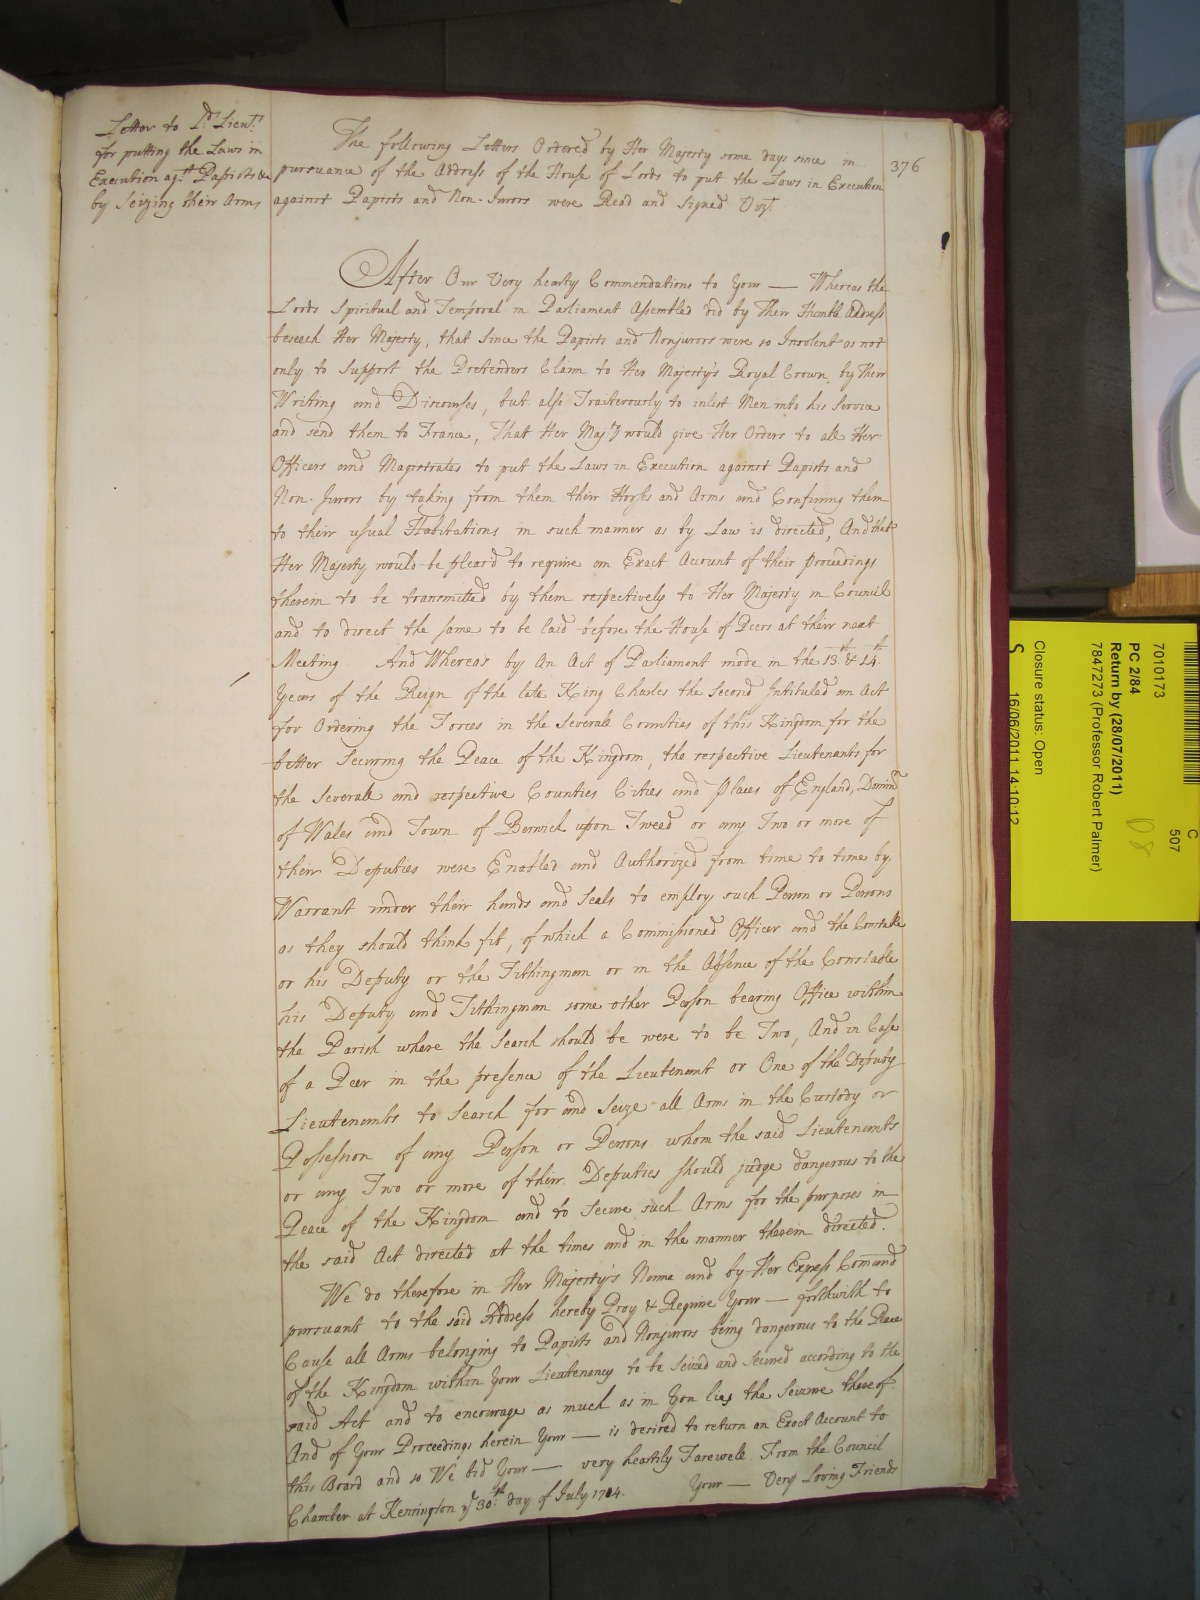 Letter to Lds Lieut.ts
for putting the Laws in
Execution agst. Papists &c
by Seizing their Arms
376
The following Letters Ordered by Her Majesty some days since in
pursuance of the Address of the House of Lords to put the Laws in Execution
against Papists and Non-Jurors were Read and Signed Vizt.
After Our Very hearty Commendations to Your — Whereas the
Lords Spiritual and Temporal in Parliament Assembled did by Their Humble Address
beseech Her Majesty, that since the Papists and Nonjurors were so Insolent as not
only to Support the Pretenders Claim to Her Majesty's Royal Crown, by Their
Writing and Discourses, but also Traiterously to inlist Men into his Service
and send them to France, That Her Majty would give Her Orders to all Her
Officers and Magistrates to put the Laws in Execution against Papists and
Non-Jurors by taking from them their Horses and Arms and Confining them
to their usual Habitations in such manner as by Law is directed, And that
Her Majesty would be pleas'd to require an Exact Account of their proceedings
therein to be transmitted by them respectively to Her Majesty in Council
and to direct the same to be laid before the House of Peers at their next
Meeting. And Whereas by An Act of Parliament made in the 13th. & 14th.
Years of the Reign of the late King Charles the Second Intituled an Act
for Ordering the Forces in the Severall Counties of this Kingdom for the
better Securing the Peace of the Kingdom, the respective Lieutenants for
the Severall and respective Counties Cities and Places of England, Domin
of Wales and Town of Berwick upon Tweed or any Two or more of
their Deputies were Enabled and Authorized from time to time by
Warrant under their hands and Seals to employ such Person or Persons
as they should think fit, of which a Commissioned Officer and the Constable
or his Deputy or the Tithingman or in the Absence of the Constable
his Deputy and Tithingman some other Person bearing Office within
the Parish where the Search should be were to be Two, And in Case
of a Peer in the presence of the Lieutenant or One of the Deputy
Lieutenants to Search for and Seize all Arms in the Custody or
Possession of any Person or Persons whom the said Lieutenants
or any Two or more of their Deputies should judge dangerous to the
Peace of the Kingdom and to Secure such Arms for the purposes in
the said Act directed at the times and in the manner therein directed.
We do therefore in Her Majesty's Name and by Her Express Comand
pursuant to the said Address hereby Pray & Require Your — forthwith to
Cause all Arms belonging to Papists and Nonjurors being dangerous to the Peace
of the Kingdom within Your Lieutenancy to be Seized and Secured according to the
said Act and to encourage as much as in You lies the Seizure thereof.
And of Your Proceedings herein Your — is desired to return an Exact Account to
this Board and so We bid Your — very heartily Farewell From the Council
Chamber at Kensington ye 30th. day of July 1714. Your — Very Loving Friends
C
507
7010173
PC 2/84
Return by (28/07/2011)
7847273 (Professor Robert Palmer)
Closure status: Open
16/06/2011 14:10:12